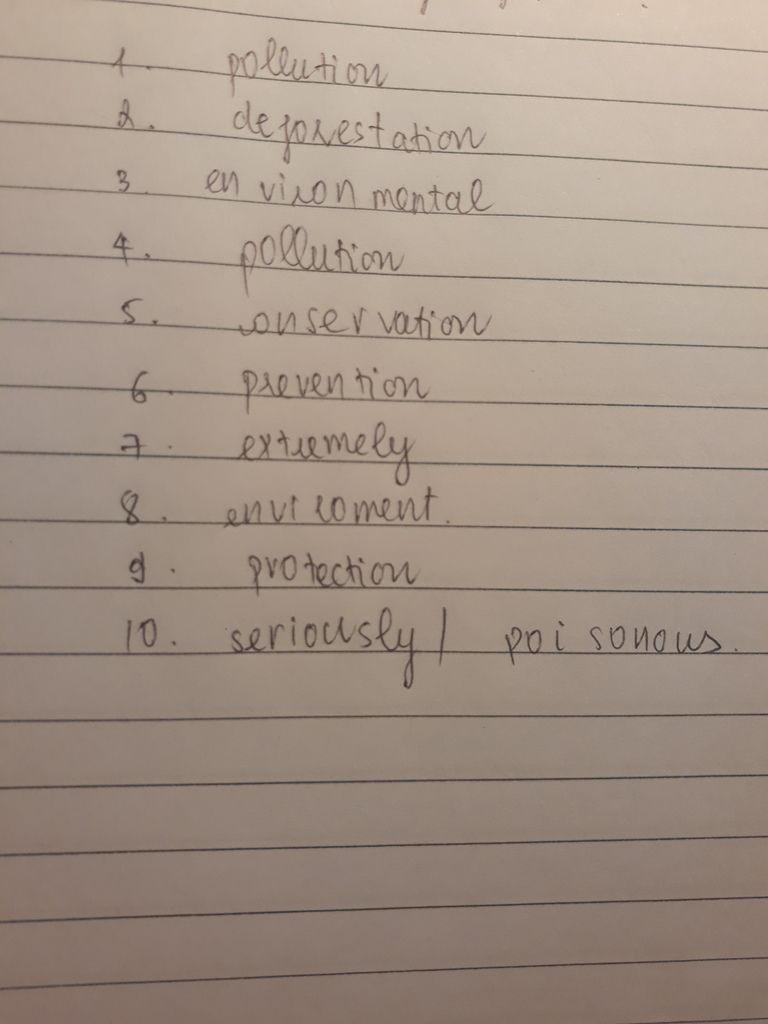 1. pollution
2. deforestation
3. environmental
4. pollution
5. conservation
6. prevention
7. extremely
8. enviroment.
9. protection
10. seriously / poisonous.